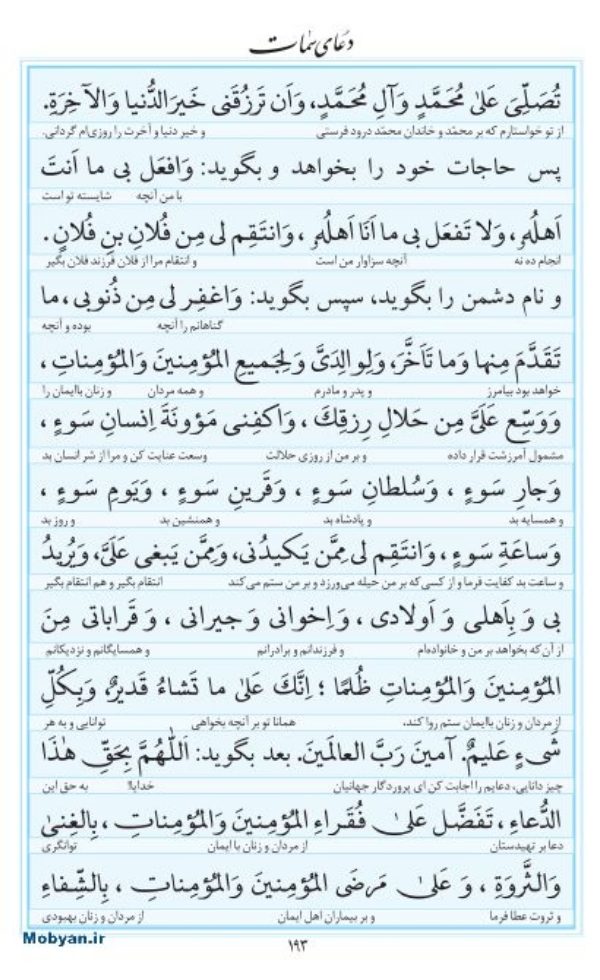 دعای سمات
تُصَلِّیَ عَلیٰ مُحَمَّدٍ وَآلِ مُحَمَّدٍ، وَاَن تَرزُقَنی خَیرَ الدُّنیا وَالآخِرَةِ.
از تو خواستارم که بر محمّد و خاندان محمّد درود فرستی و خیر دنیا و آخرت را روزی‌ام گردانی.
پس حاجات خود را بخواهد و بگوید: وَافعَل بی ما اَنتَ
با من آنچه شایسته تو است
اَهلُهُ، وَلا تَفعَل بی ما اَنَا اَهلُهُ، وَانتَقِم لی مِن فُلانِ بنِ فُلانٍ.
انجام ده نه آنچه سزاوار من است و انتقام مرا از فلان فرزند فلان بگیر
و نام دشمن را بگوید، سپس بگوید: وَاغفِر لی مِن ذُنوبی، ما
گناهانم را آنچه بوده و آنچه
تَقَدَّمَ مِنها وَما تَاَخَّرَ، وَلِوالِدَیَّ وَلِجَمیعِ المُؤمِنینَ وَالمُؤمِناتِ،
خواهد بود بیامرز و پدر و مادرم و همه مردان و زنان باایمان را
وَوَسِّع عَلَیَّ مِن حَلالِ رِزقِكَ، وَاکفِنی مَؤونَةَ اِنسانِ سَوءٍ،
مشمول آمرزشت قرار داده و بر من از روزی حلالت وسعت عنایت کن و مرا از شر انسان بد
وَجارِ سَوءٍ، وَسُلطانِ سَوءٍ، وَقَرینِ سَوءٍ، وَیَومِ سَوءٍ،
و همسایه بد و پادشاه بد و همنشین بد و روز بد
وَساعَةِ سَوءٍ، وَانتَقِم لی مِمَّن یَکیدُنی، وَمِمَّن یَبغی عَلَیَّ، وَیُریدُ
و ساعت بد کفایت فرما و از کسی که بر من حیله می‌ورزد و بر من ستم می‌کند انتقام بگیر و هم انتقام بگیر
بی وَ بِاَهلی وَ اَولادی، وَ اِخوانی وَ جیرانی، وَ قَراباتی مِنَ
از آن که بخواهد بر من و خانواده‌ام و فرزندانم و برادرانم و همسایگانم و نزدیکانم
المُؤمِنینَ وَالمُؤمِناتِ ظُلمًا؛ اِنَّكَ عَلیٰ ما تَشاءُ قَدیرٌ، وَبِکُلِّ
از مردان و زنان باایمان ستم روا کند، همانا تو بر آنچه بخواهی توانایی و به هر
شَیءٍ عَلیمٌ. آمینَ رَبَّ العالَمینَ. بعد بگوید: اَللّٰهُمَّ بِحَقِّ هٰذَا
چیز دانایی، دعایم را اجابت کن ای پروردگار جهانیان خدایا! به حق این
الدُّعاءِ، تَفَضَّل عَلیٰ فُقَراءِ المُؤمِنینَ وَالمُؤمِناتِ، بِالغِنیٰ
دعا بر تهیدستان از مردان و زنان با ایمان توانگری
وَالثَّروَةِ، وَ عَلیٰ مَرضَی المُؤمِنینَ وَالمُؤمِناتِ، بِالشِّفاءِ
و ثروت عطا فرما و بر بیماران اهل ایمان از مردان و زنان بهبودی
Mobyan.ir
۱۹۳